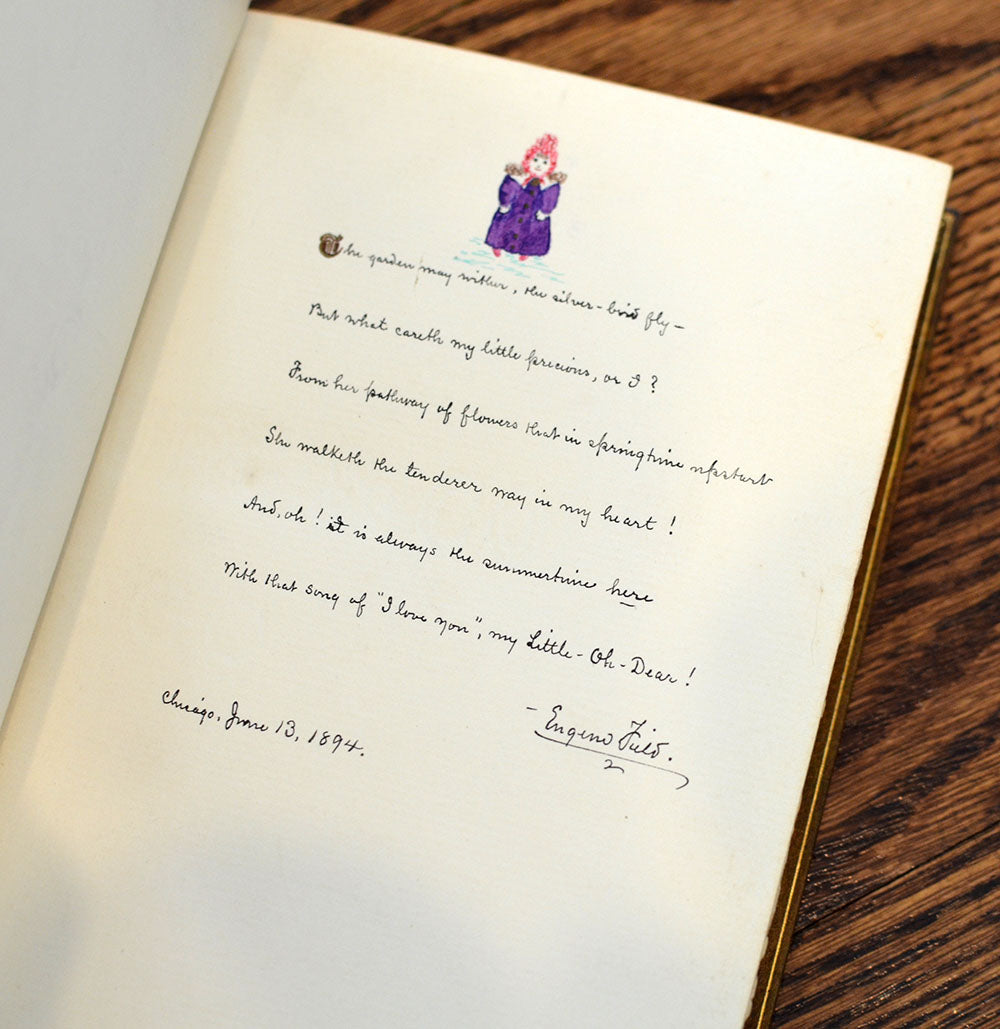 The garden may wither, the silver-bird fly—
But what careth my little precious, or I?
From her pathway of flowers that in springtime upstart
She walketh the tenderer way in my heart!
And, oh! it is always the summertime here
With that song of "I love you", my Little-Oh-Dear!
— Eugene Field.
Chicago, June 13, 1894.